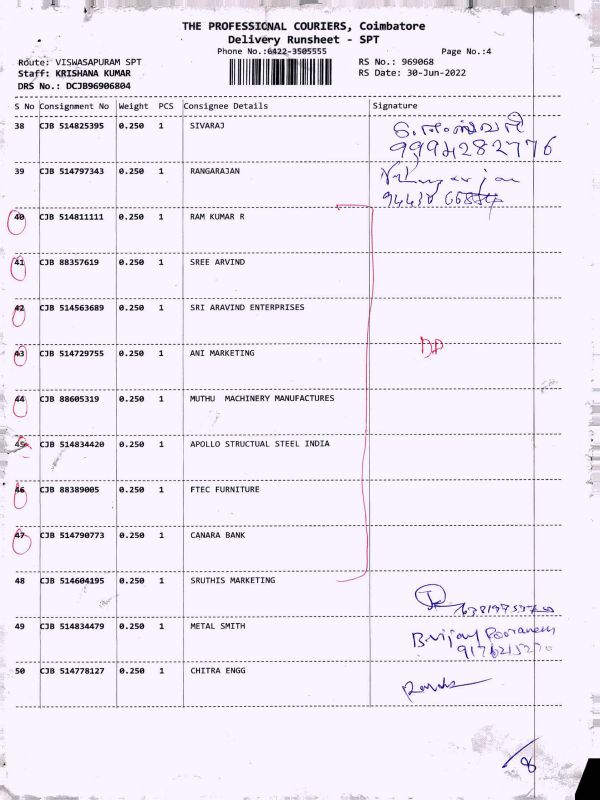 THE PROFESSIONAL COURIERS, Coimbatore
Delivery Runsheet - SPT
Phone No.:0422-3505555 Page No.:4
Route: VISWASAPURAM SPT RS No.: 969068
Staff: KRISHANA KUMAR RS Date: 30-Jun-2022
DRS No.: DCJB96906804
S No Consignment No Weight PCS Consignee Details Signature
38 CJB 514825395 0.250 1 SIVARAJ
9994282776
39 CJB 514797343 0.250 1 RANGARAJAN
40 CJB 514811111 0.250 1 RAM KUMAR R
41 CJB 88357619 0.250 1 SREE ARVIND
42 CJB 514563689 0.250 1 SRI ARAVIND ENTERPRISES
43 CJB 514729755 0.250 1 ANI MARKETING
44 CJB 88605319 0.250 1 MUTHU MACHINERY MANUFACTURES
45 CJB 514834420 0.250 1 APOLLO STRUCTUAL STEEL INDIA
46 CJB 88389005 0.250 1 FTEC FURNITURE
47 CJB 514790773 0.250 1 CANARA BANK
48 CJB 514604195 0.250 1 SRUTHIS MARKETING
49 CJB 514834479 0.250 1 METAL SMITH
50 CJB 514778127 0.250 1 CHITRA ENGG
8